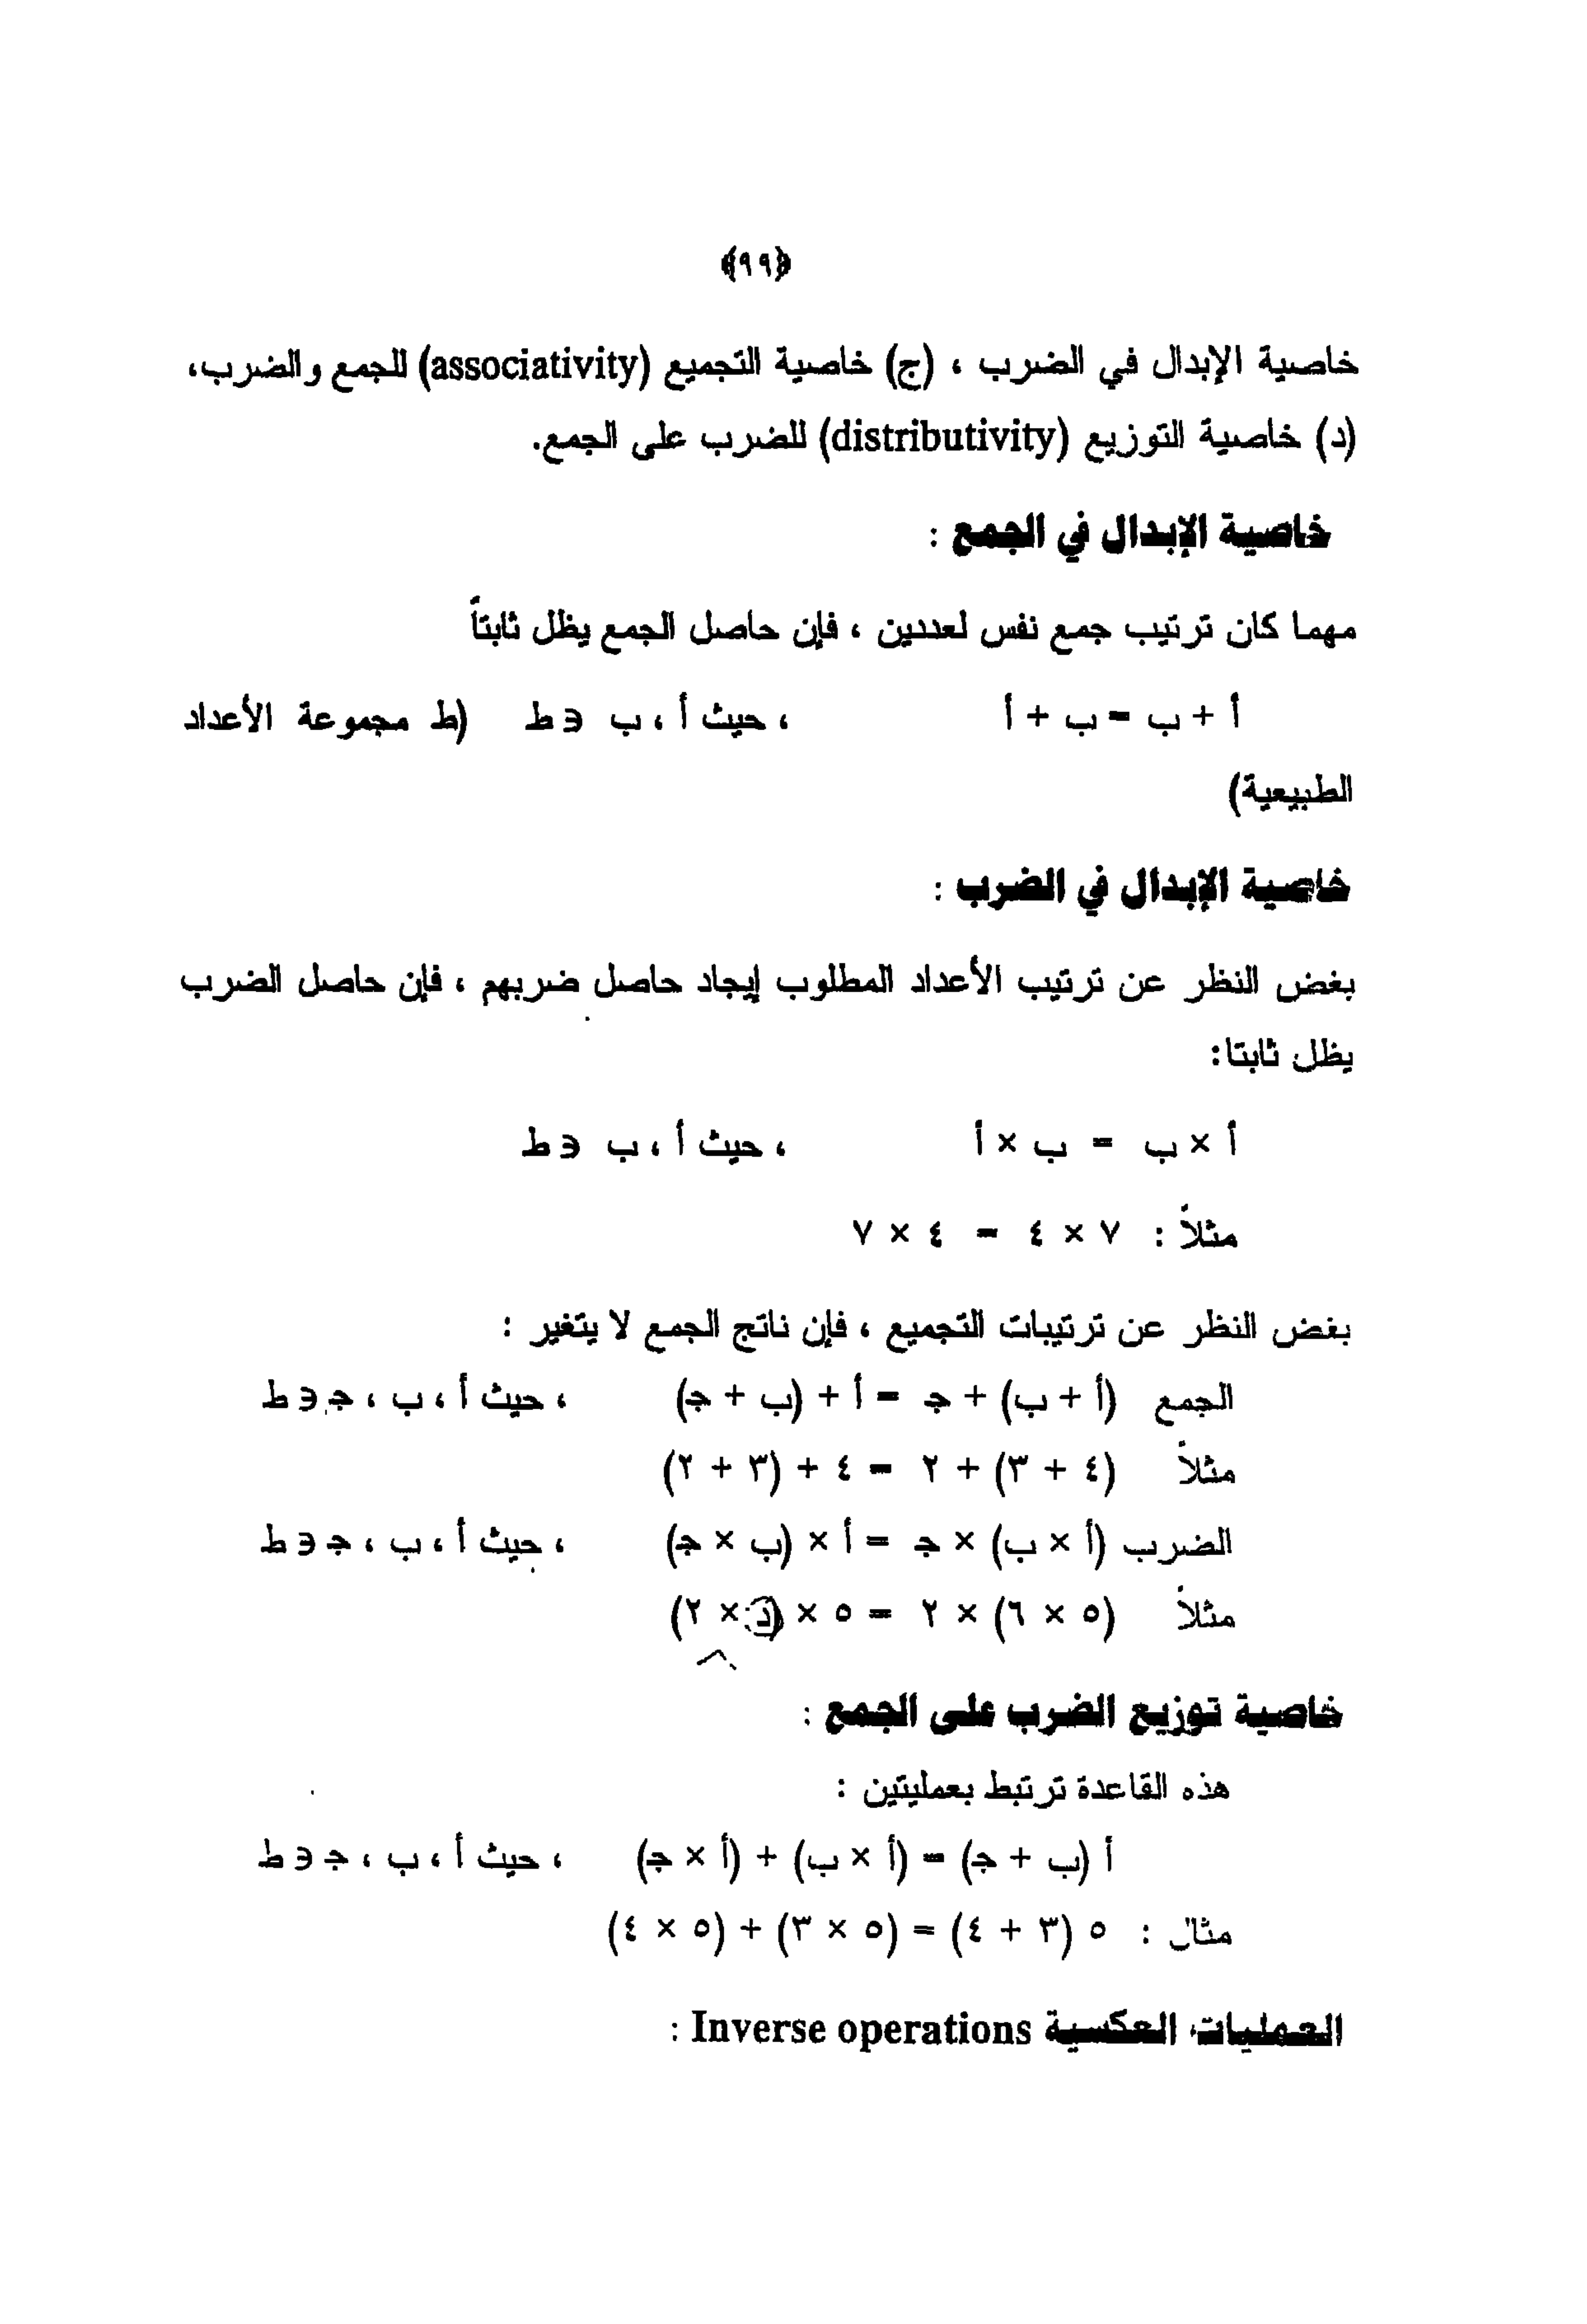 ﴿٩٩﴾
خاصية الإبدال في الضرب ، (ج) خاصية التجميع (associativity) للجمع والضرب،
(د) خاصية التوزيع (distributivity) للضرب على الجمع.
خاصية الإبدال في الجمع :
مهما كان ترتيب جمع نفس لعددين ، فإن حاصل الجمع يظل ثابتاً
أ + ب = ب + أ ، حيث أ ، ب ∋ ط (ط مجموعة الأعداد
الطبيعية)
خاصية الإبدال في الضرب :
بغض النظر عن ترتيب الأعداد المطلوب إيجاد حاصل ضربهم ، فإن حاصل الضرب
يظل ثابتا:
أ × ب = ب × أ ، حيث أ ، ب ∋ ط
مثلاً : ٧ × ٤ = ٤ × ٧
بغض النظر عن ترتيبات التجميع ، فإن ناتج الجمع لا يتغير :
الجمع (أ + ب) + جـ = أ + (ب + جـ) ، حيث أ ، ب ، جـ ∋ ط
مثلاً (٤ + ٣) + ٢ = ٤ + (٣ + ٢)
الضرب (أ × ب) × جـ = أ × (ب × جـ) ، حيث أ ، ب ، جـ ∋ ط
مثلاً (٥ × ٦) × ٢ = ٥ × (د × ٢)
خاصية توزيع الضرب على الجمع :
هذه القاعدة ترتبط بعمليتين :
أ (ب + جـ) = (أ × ب) + (أ × جـ) ، حيث أ ، ب ، جـ ∋ ط
مثال : ٥ (٣ + ٤) = (٥ × ٣) + (٥ × ٤)
العمليات العكسية Inverse operations :